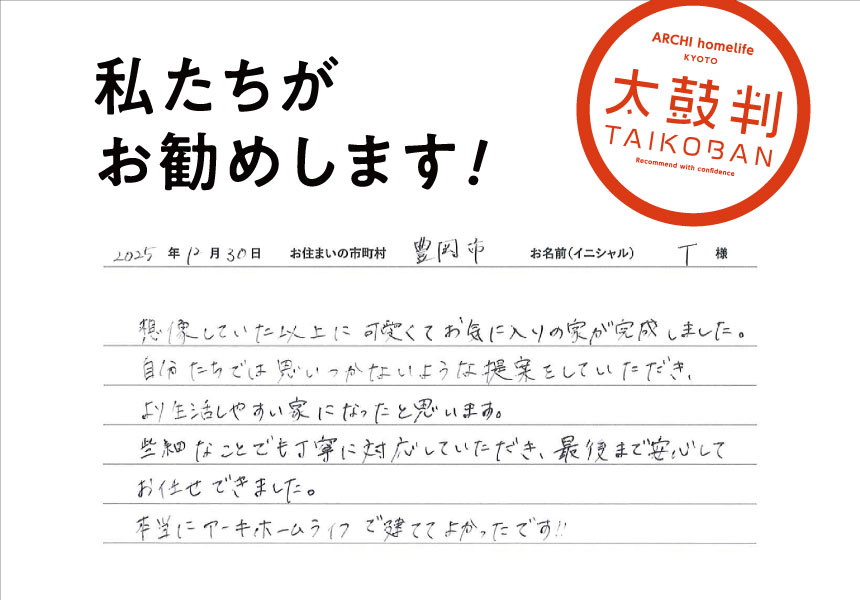 ARCHI homelife
KYOTO
太鼓判
TAIKOBAN
Recommend with confidence
私たちが
お勧めします!
2025 年 12 月 30 日 お住まいの市町村 豊岡市 お名前(イニシャル) T 様
想像していた以上に可愛くてお気に入りの家が完成しました。
自分たちでは思いつかないような提案をしていただき、
より生活しやすい家になったと思います。
些細なことでも丁寧に対応していただき、最後まで安心して
お任せできました。
本当にアーキホームライフで建ててよかったです!!